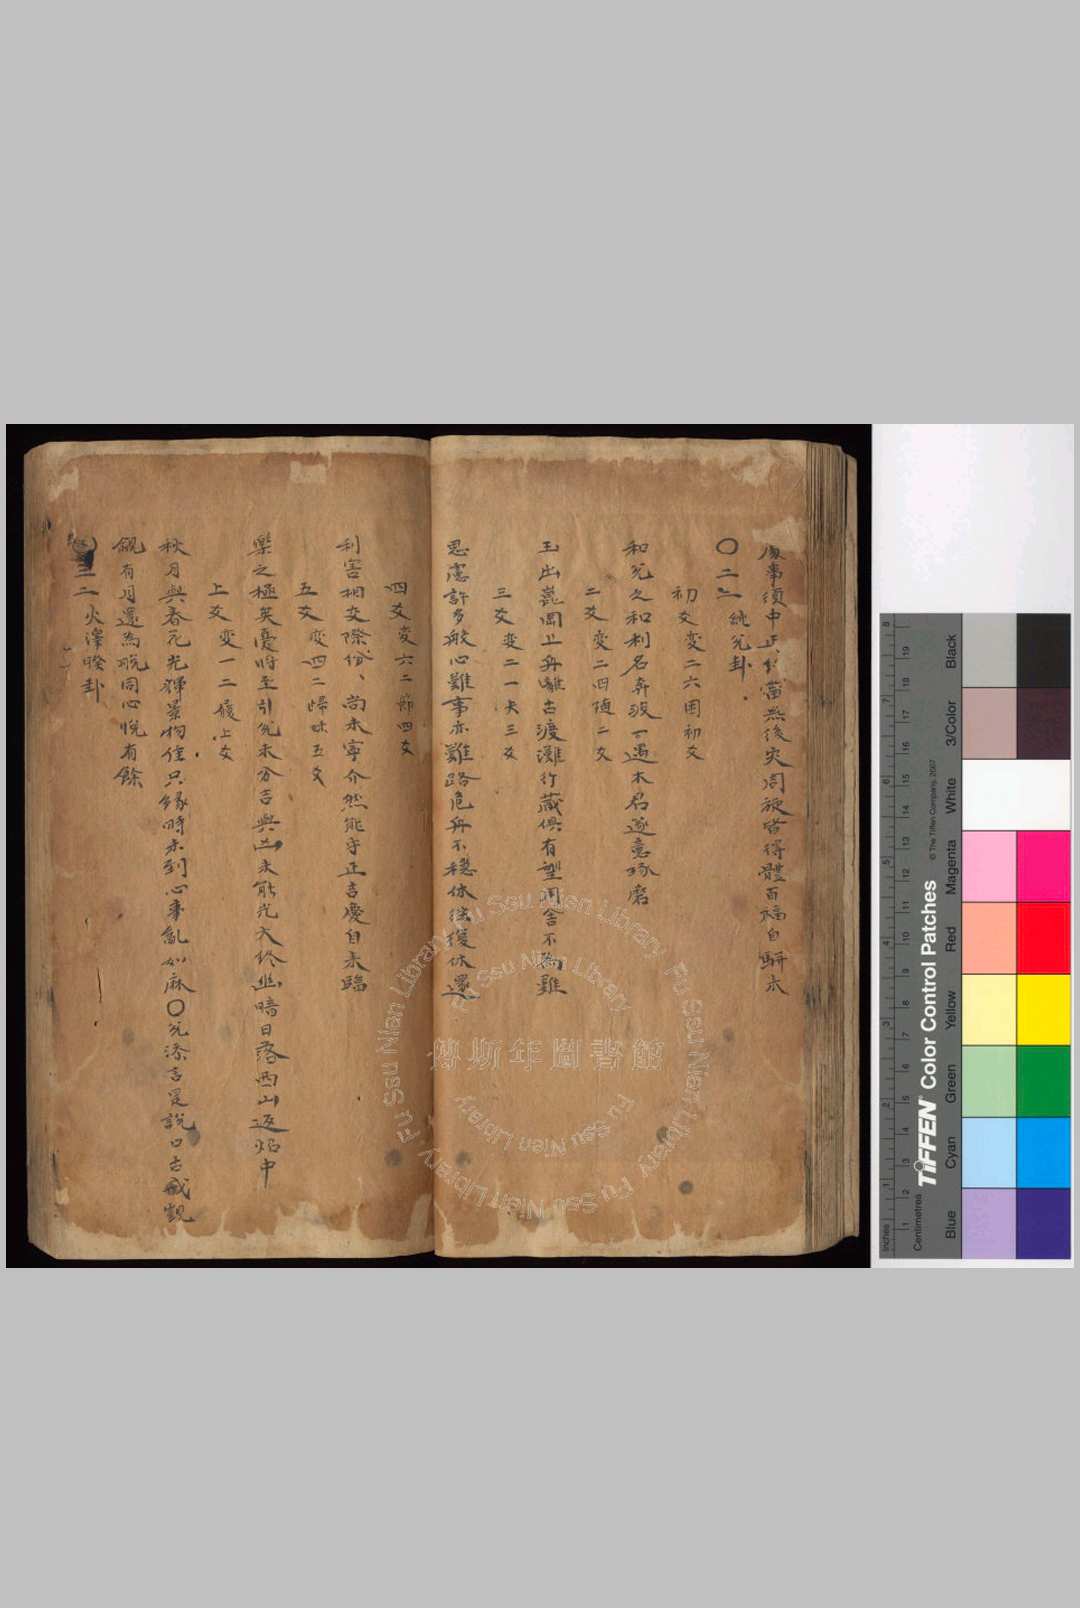 事須中正 當然後災周旋皆得體百福自駢
〇二二 純兌卦
初爻変二六困初爻
和兌之和利名奔波一遇木君遂意琢磨
二爻変二四随二爻
玉出崑岡上舟離古渡灘行藏俱有望
三爻変二一夬三爻
思慮許多般心難事亦難路危舟不穩休往復休還
四爻変六二節四爻
利害相交際份、尚未寧介然能守正吉慶自来臨
五爻変四二歸妹五爻
樂之極矣憂將至引兌未分吉與凶未能光大終幽暗日落西山返炤中
上爻変一二履上爻
秋月與春花光輝景物佳只緣時未到心事亂如麻〇兌添言是説口
有月還為脱同心悦有餘
三二火澤睽卦
傅斯年圖書館
Fu Ssu Nien Library
TIFFEN Color Control Patches
© The Tiffen Company, 2007
Inches
Centimetres
Blue
Cyan
Green
Yellow
Red
Magenta
White
3/Color
Black